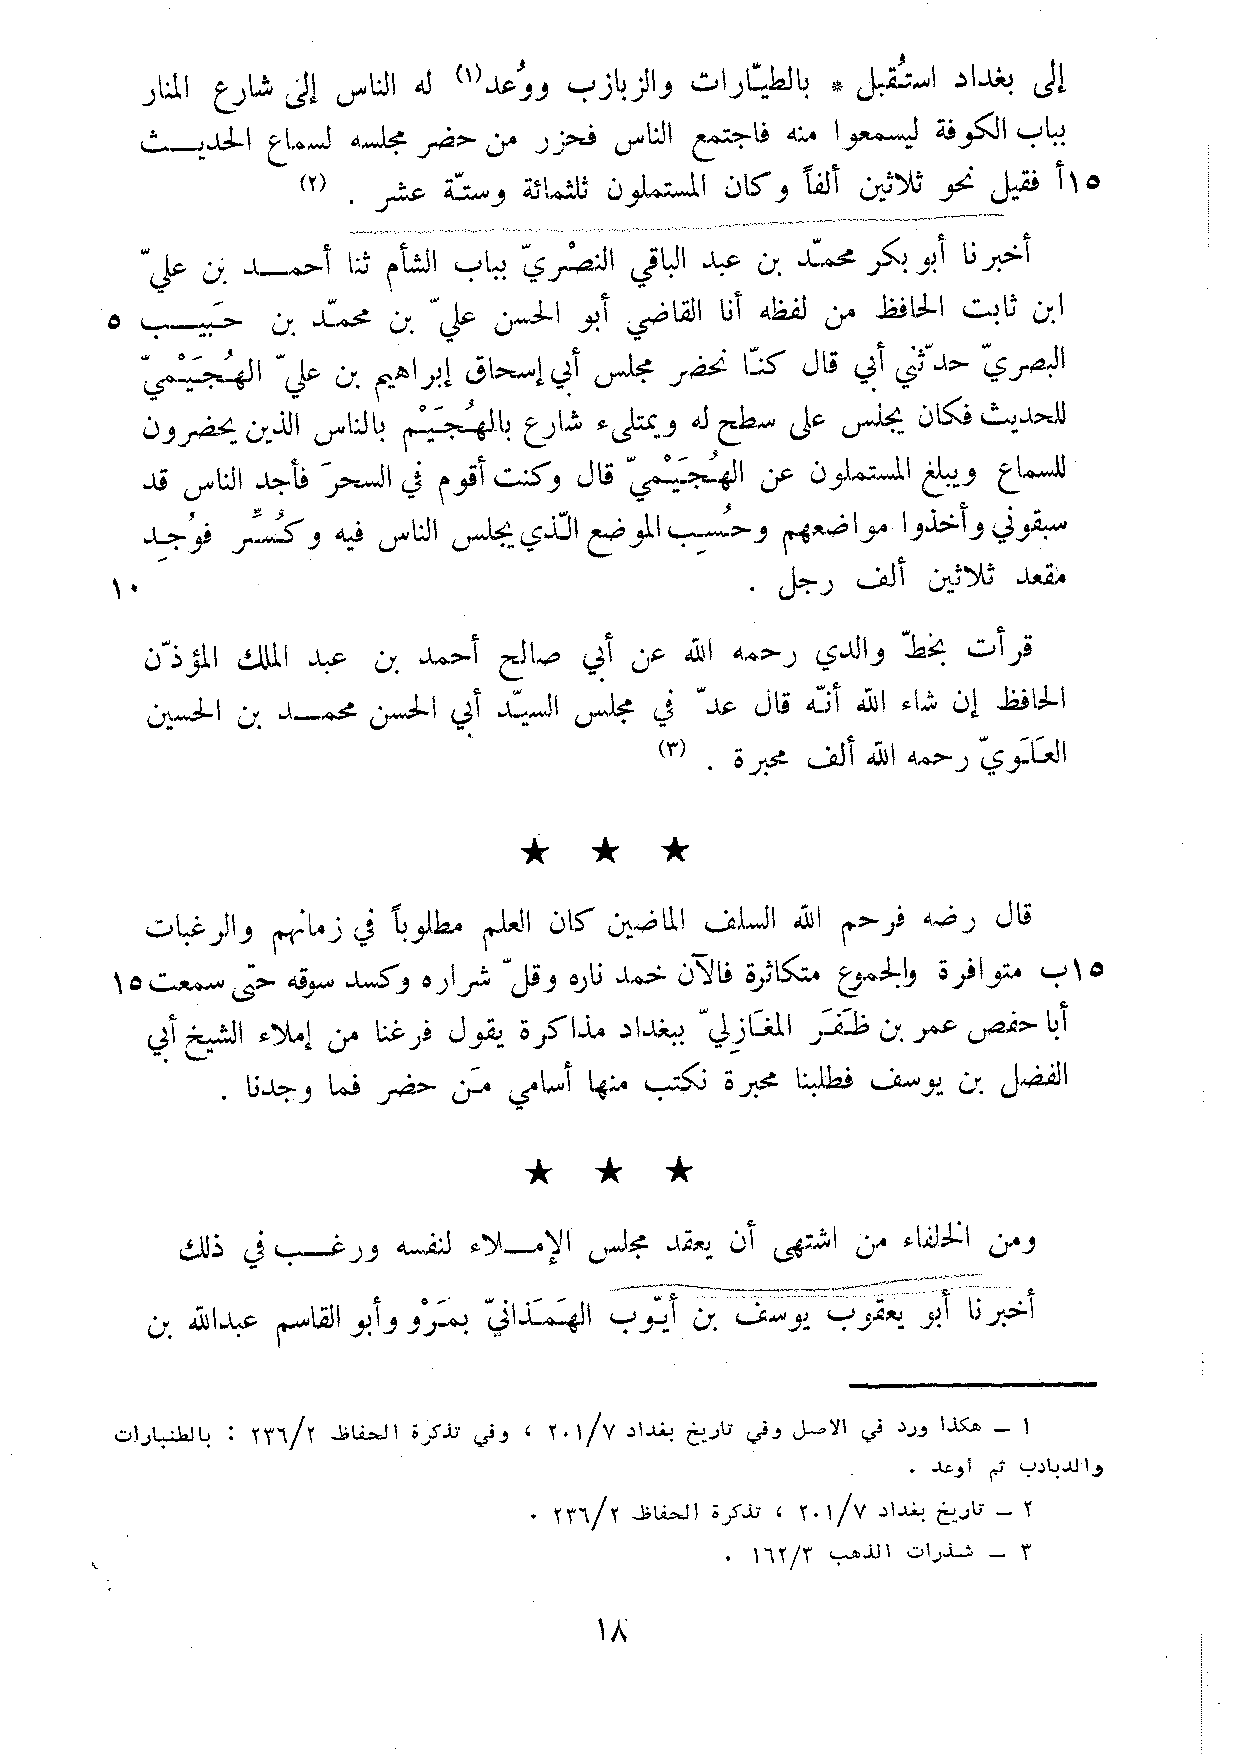 إلى بغداد استُقبل * بالطيّارات والزبازب ووُعد(١) له الناس إلى شارع المنار
بباب الكوفة ليسمعوا منه فاجتمع الناس فحزر من حضر مجلسه لسماع الحديث
١٥أ فقيل نحو ثلاثين ألفاً وكان المستملون ثلثمائة وستّة عشر . (٢)
أخبرنا أبو بكر محمّد بن عبد الباقي النصْريّ بباب الشأم ثنا أحمد بن عليّ
ابن ثابت الحافظ من لفظه أنا القاضي أبو الحسن عليّ بن محمّد بن حَبيب ٥
البصريّ حدّثني أبي قال كنّا نحضر مجلس أبي إسحاق إبراهيم بن عليّ الهُجَيْميّ
للحديث فكان يجلس على سطح له ويمتلىء شارع بالهُجَيْم بالناس الذين يحضرون
للسماع ويبلغ المستملون عن الهُجَيْميّ قال وكنت أقوم في السحرَ فأجد الناس قد
سبقوني وأخذوا مواضعهم وحُسِب الموضع الّذي يجلس الناس فيه وكُسّر فوُجِد
مقعد ثلاثين ألف رجل . ١٠
قرأت بخطّ والدي رحمه الله عن أبي صالح أحمد بن عبد الملك المؤذّن
الحافظ إن شاء الله أنّه قال عدّ في مجلس السيّد أبي الحسن محمد بن الحسين
العَلَويّ رحمه الله ألف محبرة . (٣)
★ ★ ★
قال رضه فرحم الله السلف الماضين كان العلم مطلوباً في زمانهم والرغبات
١٥ب متوافرة والجموع متكاثرة فالآن خمد ناره وقلّ شراره وكسد سوقه حتّى سمعت ١٥
أبا حفص عمر بن ظَفَر المَغَازِليّ ببغداد مذاكرة يقول فرغنا من إملاء الشيخ أبي
الفضل بن يوسف فطلبنا محبرة نكتب منها أسامي مَن حضر فما وجدنا .
★ ★ ★
ومن الخلفاء من اشتهى أن يعقد مجلس الإملاء لنفسه ورغب في ذلك
أخبرنا أبو يعقوب يوسف بن أيّوب الهَمَذانيّ بمَرْو وأبو القاسم عبدالله بن
١ – هكذا ورد في الاصل وفي تاريخ بغداد ٢٠١/٧ ، وفي تذكرة الحفاظ ٢٣٦/٢ : بالطنبارات
والدبادب ثم أوعد .
٢ – تاريخ بغداد ٢٠١/٧ ، تذكرة الحفاظ ٢٣٦/٢ .
٣ – شذرات الذهب ١٦٢/٣ .
١٨